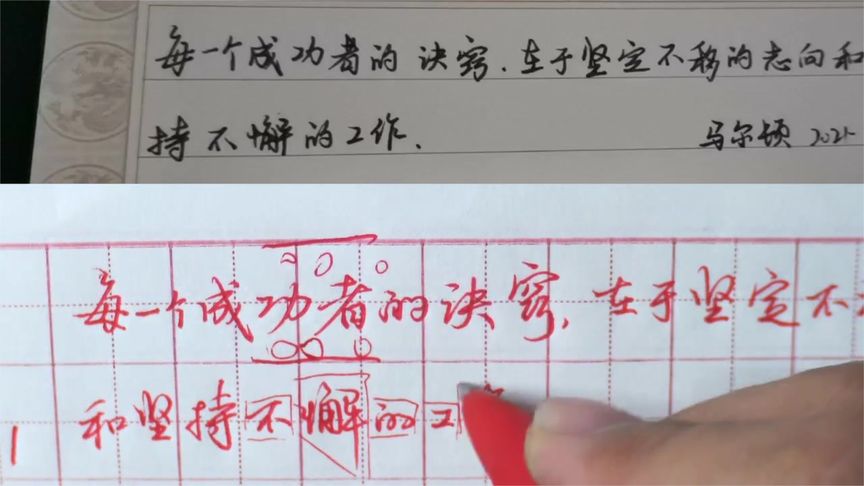 每一个成功者的诀窍.在于坚定不移的志向和
持不懈的工作.
马尔顿 2021
每一个成功者的诀窍.在于坚定不
和坚持不懈的工